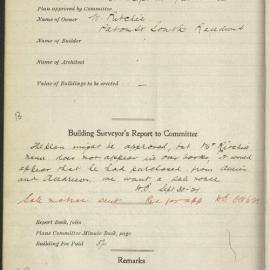 Plan approved by Committee
Name of Owner W. Ritchie
South
Name of Builder
Name of Architect
Value of Buildings to be erected -
Building Surveyor's Report to Committee
The plan might be approved, but Mr Ritchie
name does not appear in our books, it would
appear that he had purchased from
and Andrew, we want a sale note
Sept 20-21
Sale notice sent. Rec for app
Report Book, folio
Plans Committee Minute Book, page
Building Fee Paid
Remarks